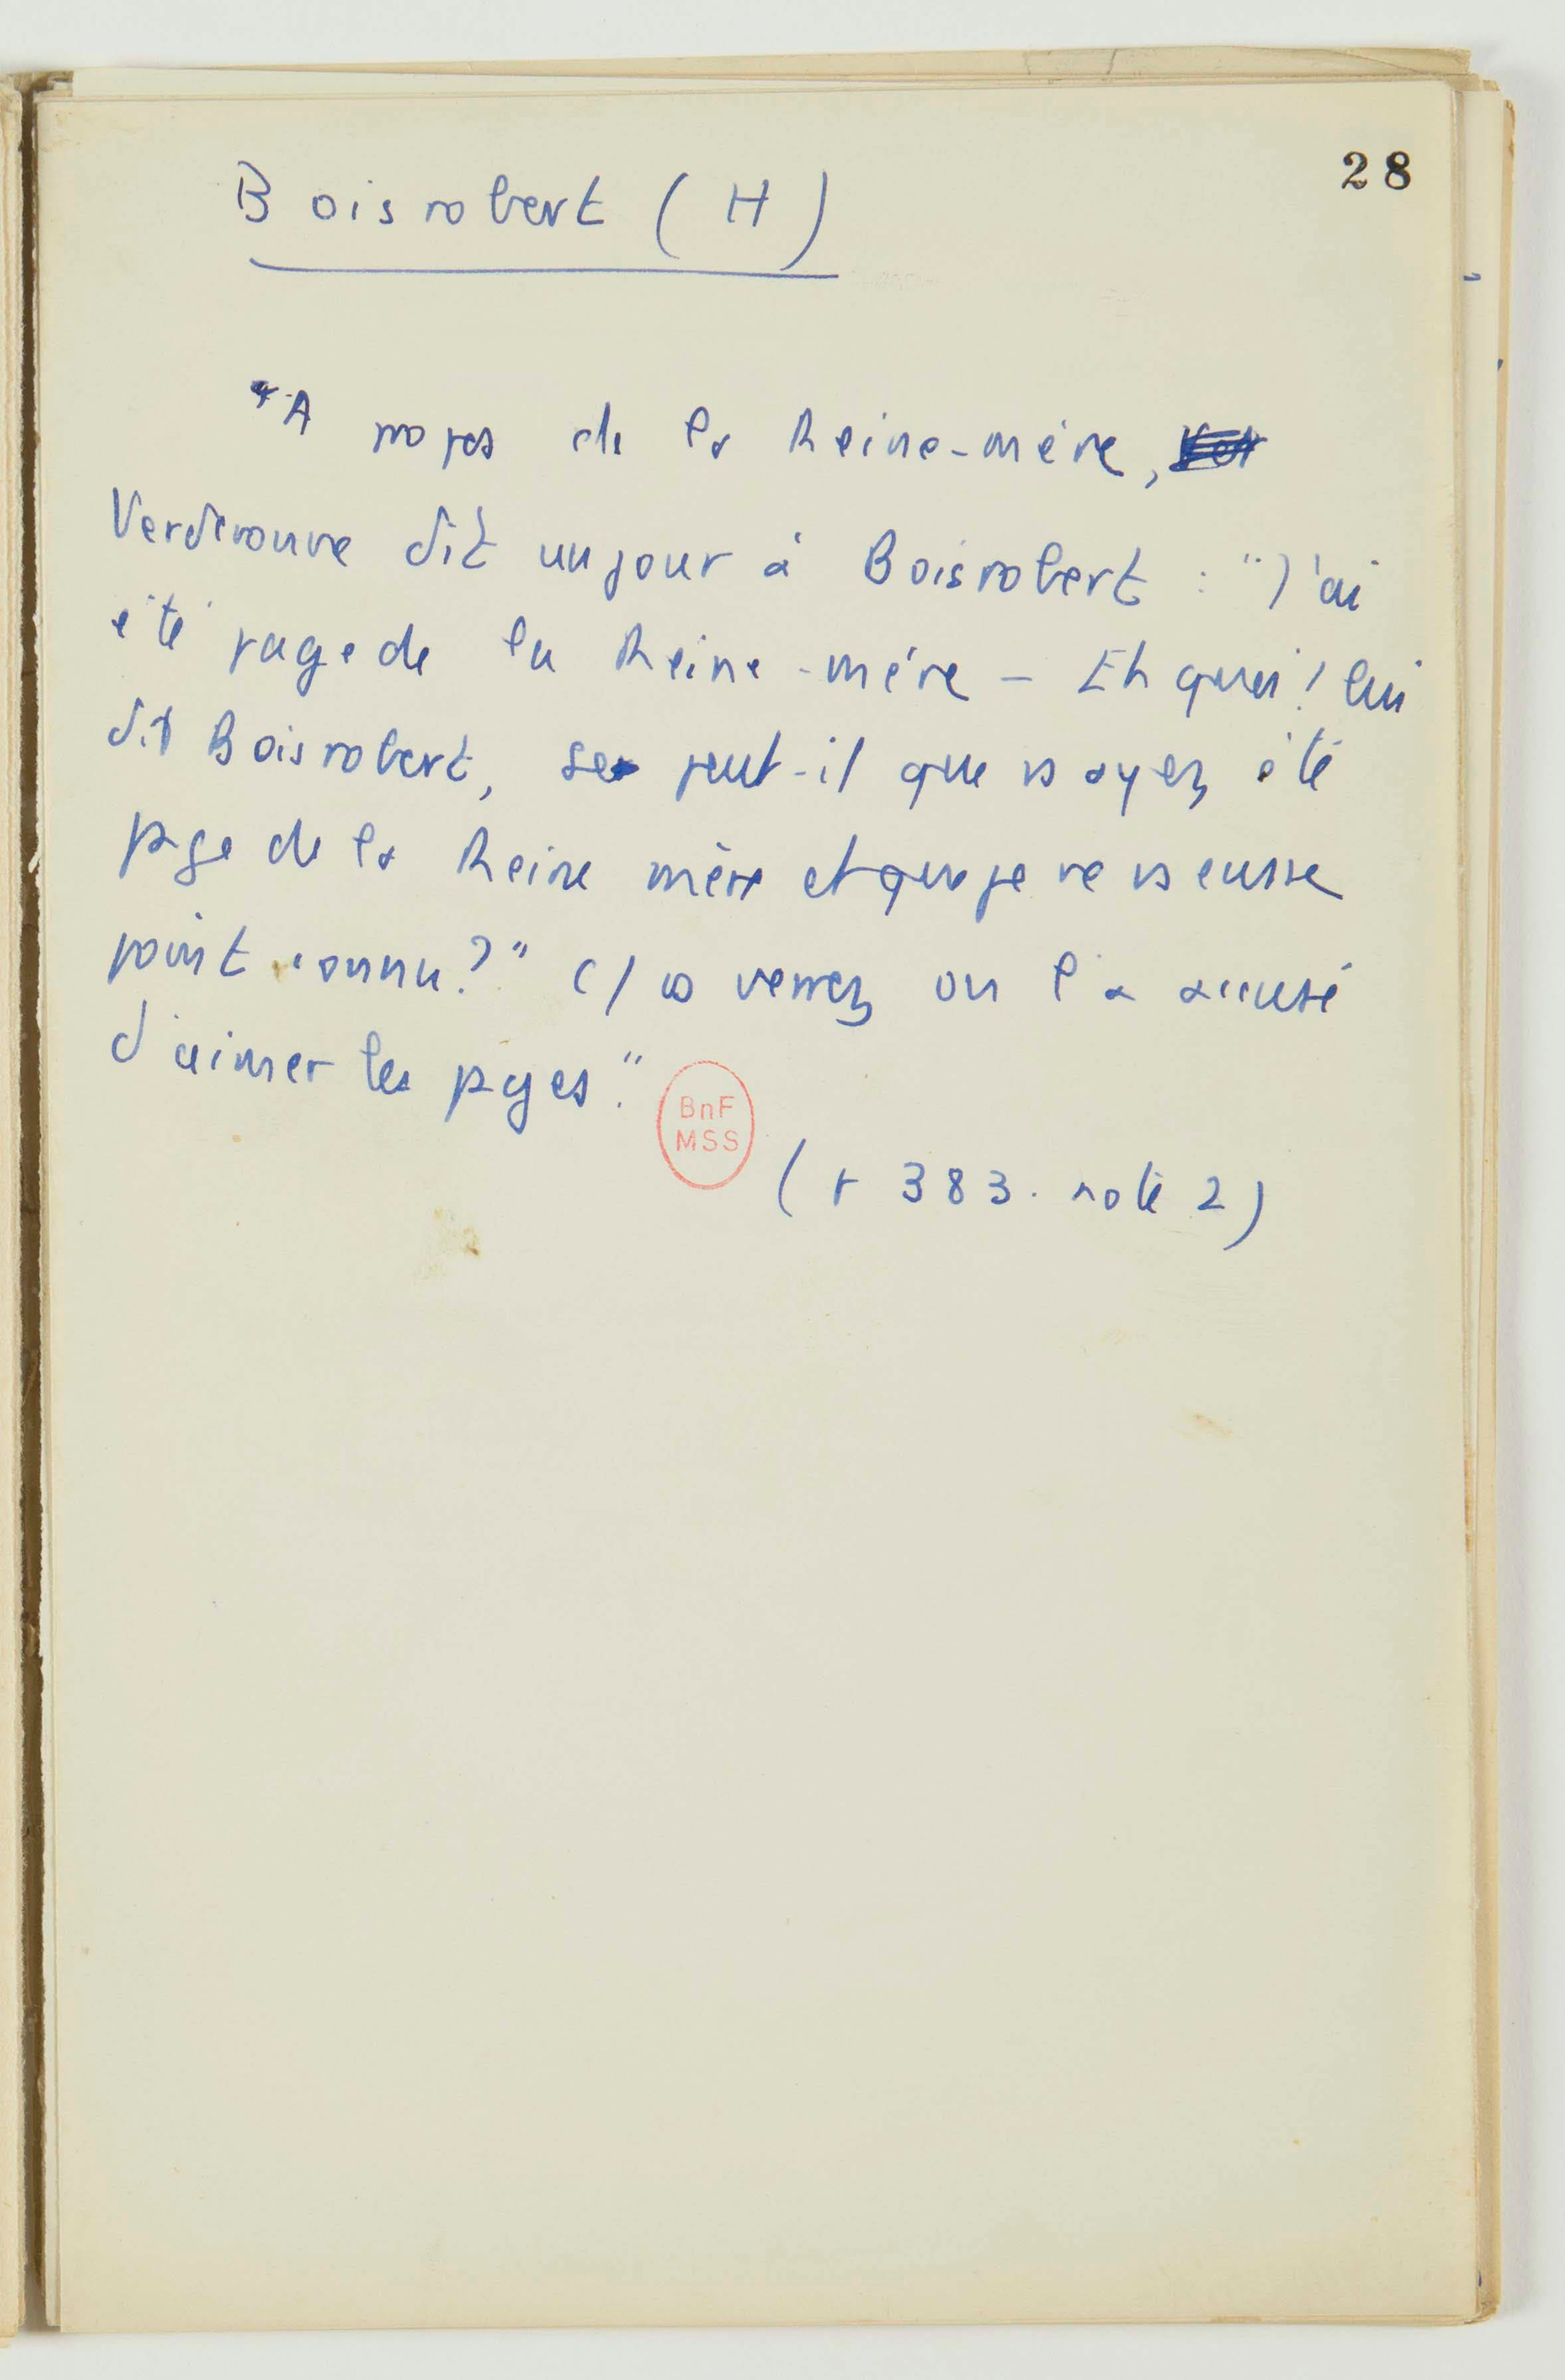 28
Boisrobert (H)
"A propos de la Reine-mère,
Verderonne dit un jour à Boisrobert : "J'ai
été page de la Reine-mère – Eh quoi ! lui
dit Boisrobert, se peut-il que vs ayez été
page de la Reine mère et que je ne vs eusse
point connu ?" C/ vs verrez on l'a accusé
d'aimer les pages."
BnF
MSS
(p 383. note 2)